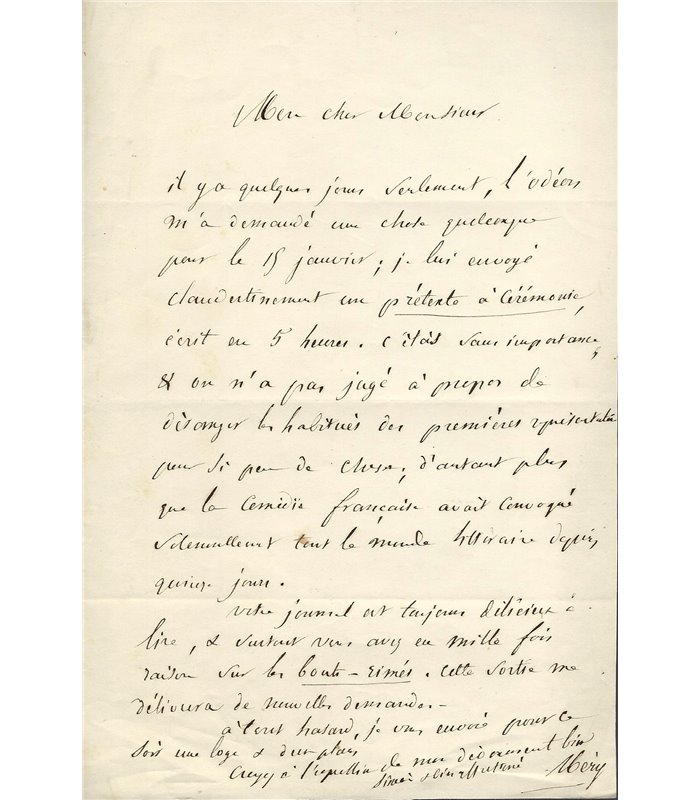 Mon cher Monsieur
il y a quelques jours seulement, l'odéon
m'a demandé une chose quelconque
pour le 15 janvier; je lui envoyé
clandestinement un prétexte à Cérémonie,
écrit en 5 heures. c'était sans importance,
& on n'a pas jugé à propos de
déranger les habitués des premières représentations
pour si peu de chose, d'autant plus
que la Comédie française avait convoqué
solennellement tout le monde littéraire depuis
quinze jours.
votre journal est toujours délicieux à
lire, & surtout vous avez eu mille fois
raison sur les bouts-rimés. cette sortie me
délivrera de nouvelles demandes -
à tout hasard, je vous envoie pour ce
soir une loge & deux places
Croyez à l'expression de mon dévouement bien
sincère &
Méry